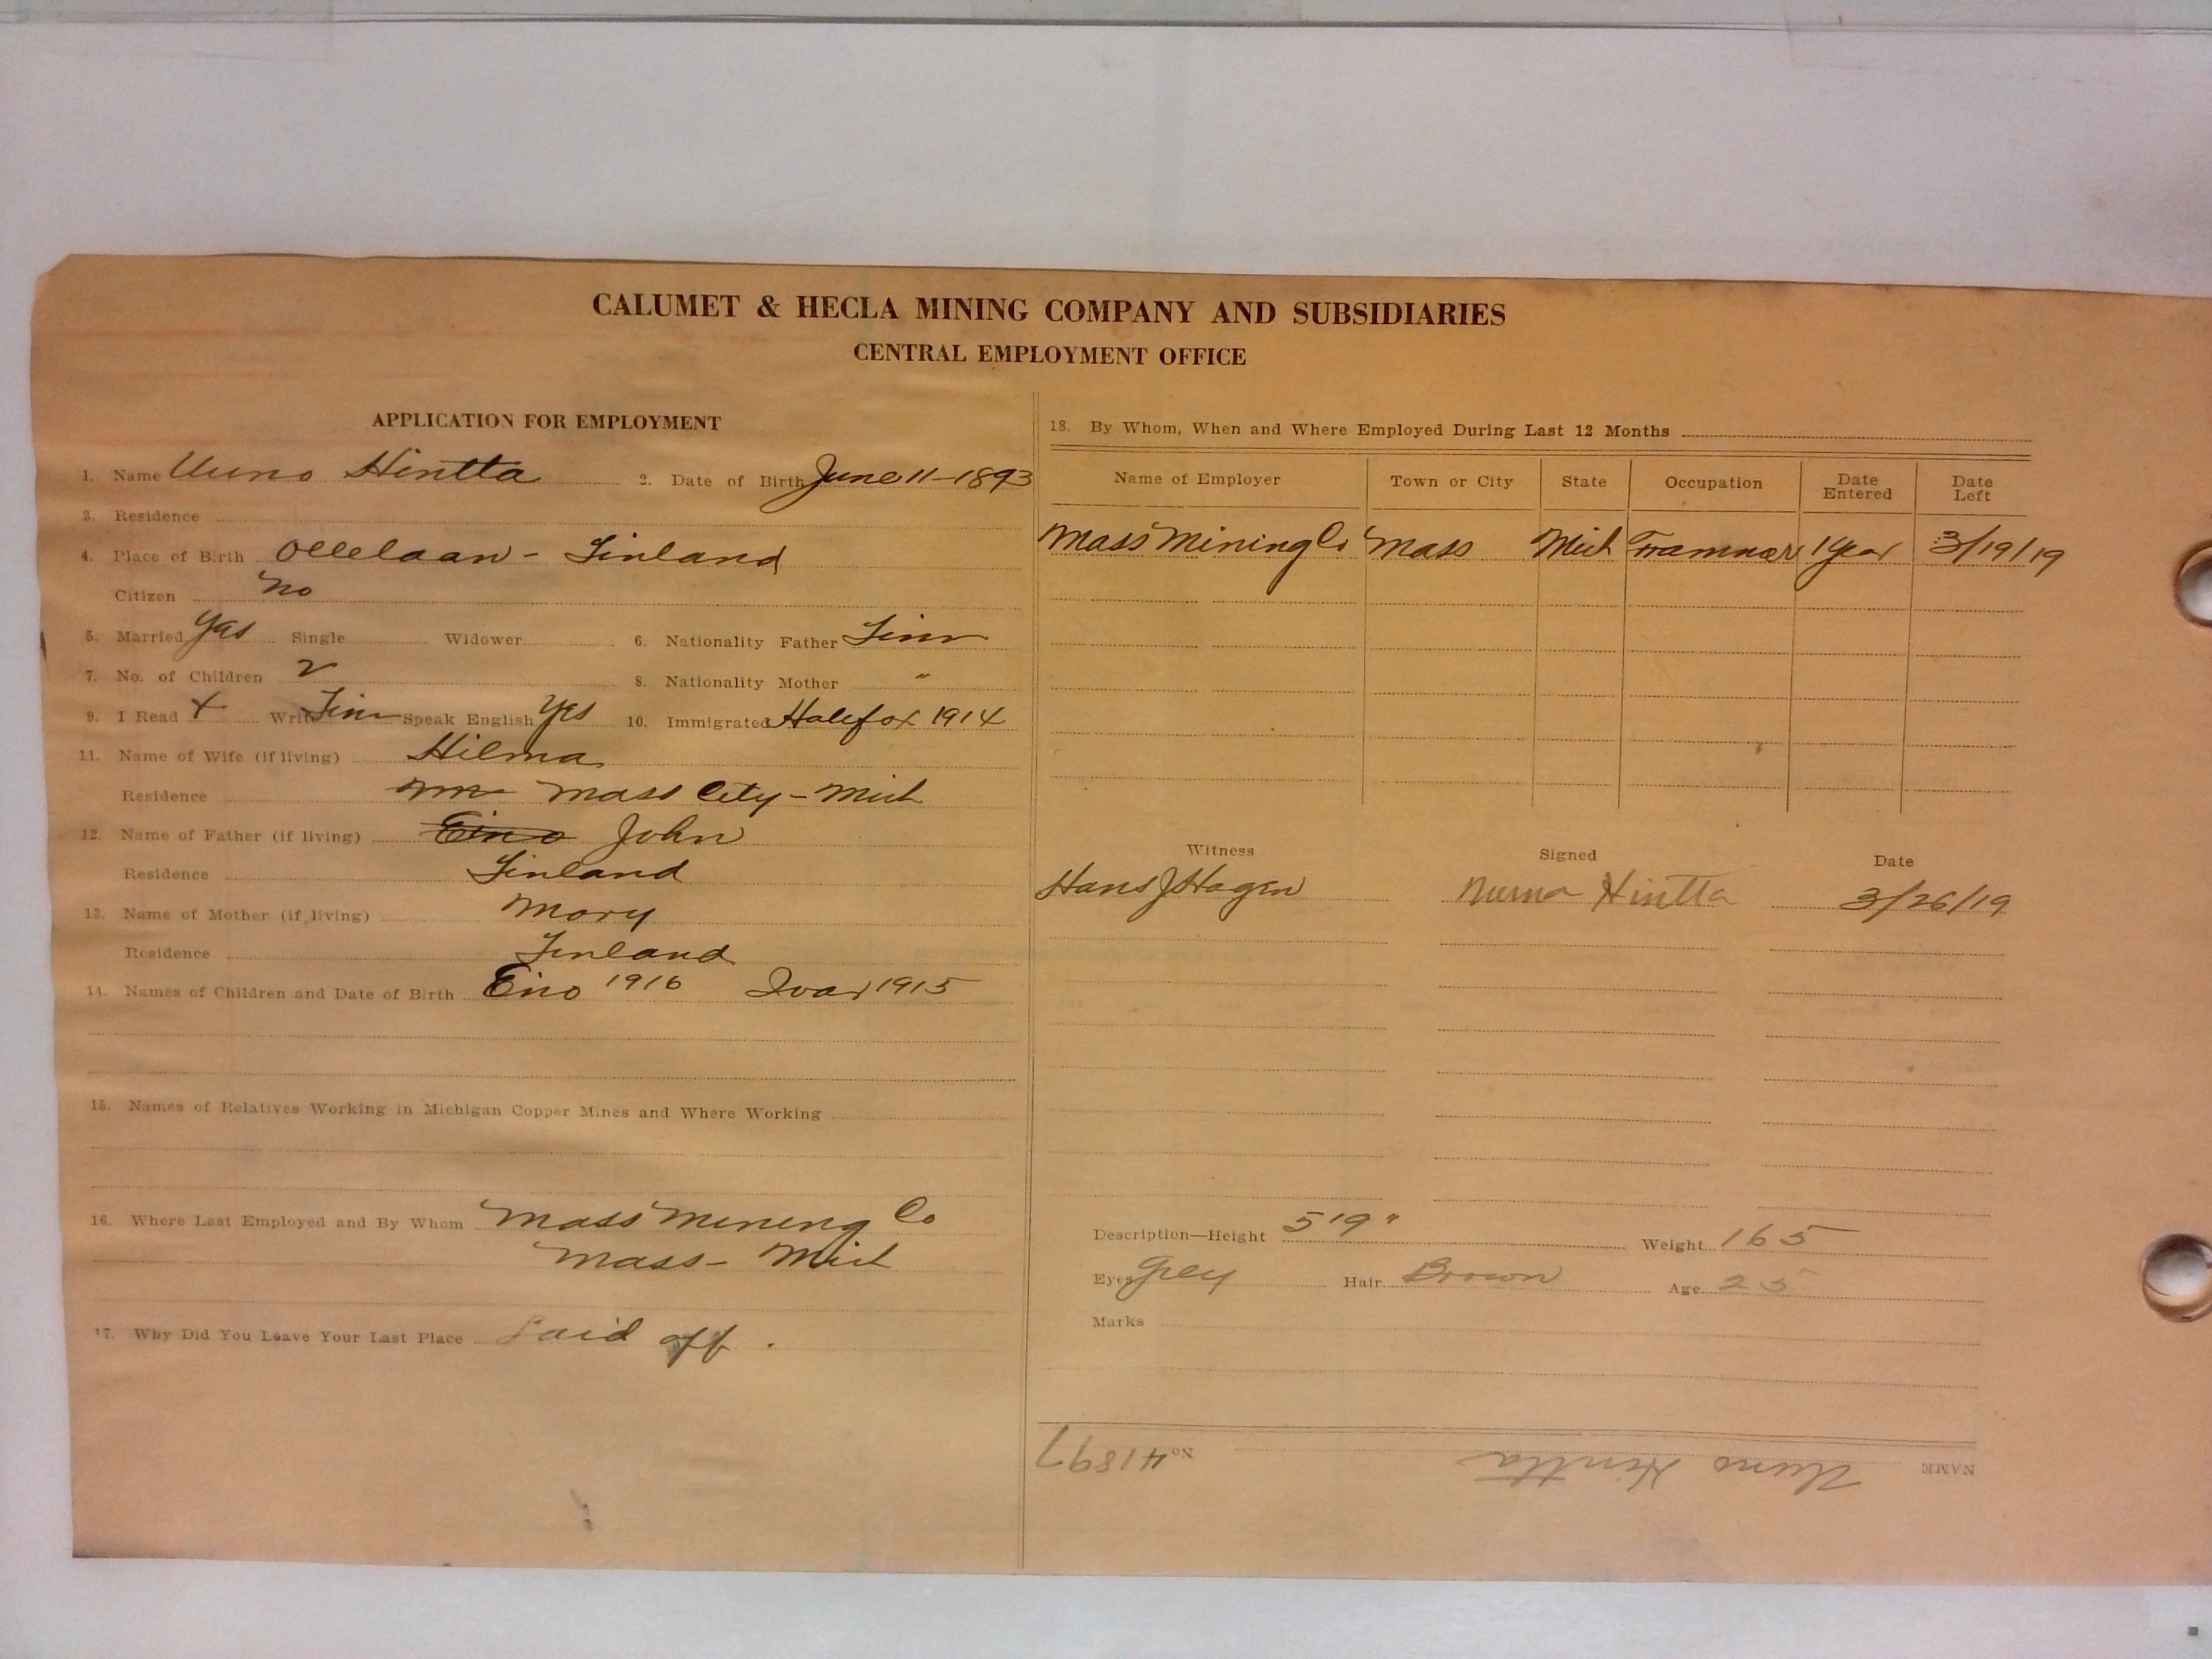 CALUMET & HECLA MINING COMPANY AND SUBSIDIARIES
CENTRAL EMPLOYMENT OFFICE
APPLICATION FOR EMPLOYMENT
1. Name Uuno Hintta 2. Date of Birth June 11-1893
3. Residence
4. Place of Birth - Finland
Citizen no
5. Married yes Single Widower 6. Nationality Father Finn
7. No. of Children 2 8. Nationality Mother "
9. I Read + Write Finn Speak English Yes 10. Immigrated Halefox 1914
11. Name of Wife (if living) Hilma
Residence Mass City - Mich
12. Name of Father (if living) Eino John
Residence Finland
13. Name of Mother (if living) Mary
Residence Finland
14. Names of Children and Date of Birth Eino 1916 Ivar 1915
15. Names of Relatives Working in Michigan Copper Mines and Where Working
16. Where Last Employed and By Whom Mass Mining Co
Mass - Mich
17. Why Did You Leave Your Last Place Laid off.
18. By Whom, When and Where Employed During Last 12 Months
Name of Employer Town or City State Occupation Date Entered Date Left
Mass Mining Co Mass Mich Trammer 1 Year 3/19/19
Witness Signed Date
Hans J Hagen Hintta 3/26/19
Description—Height 5'9" Weight 165
Eyes Grey Hair Brown Age 25
Marks
NAME Uuno Hintta No 41897